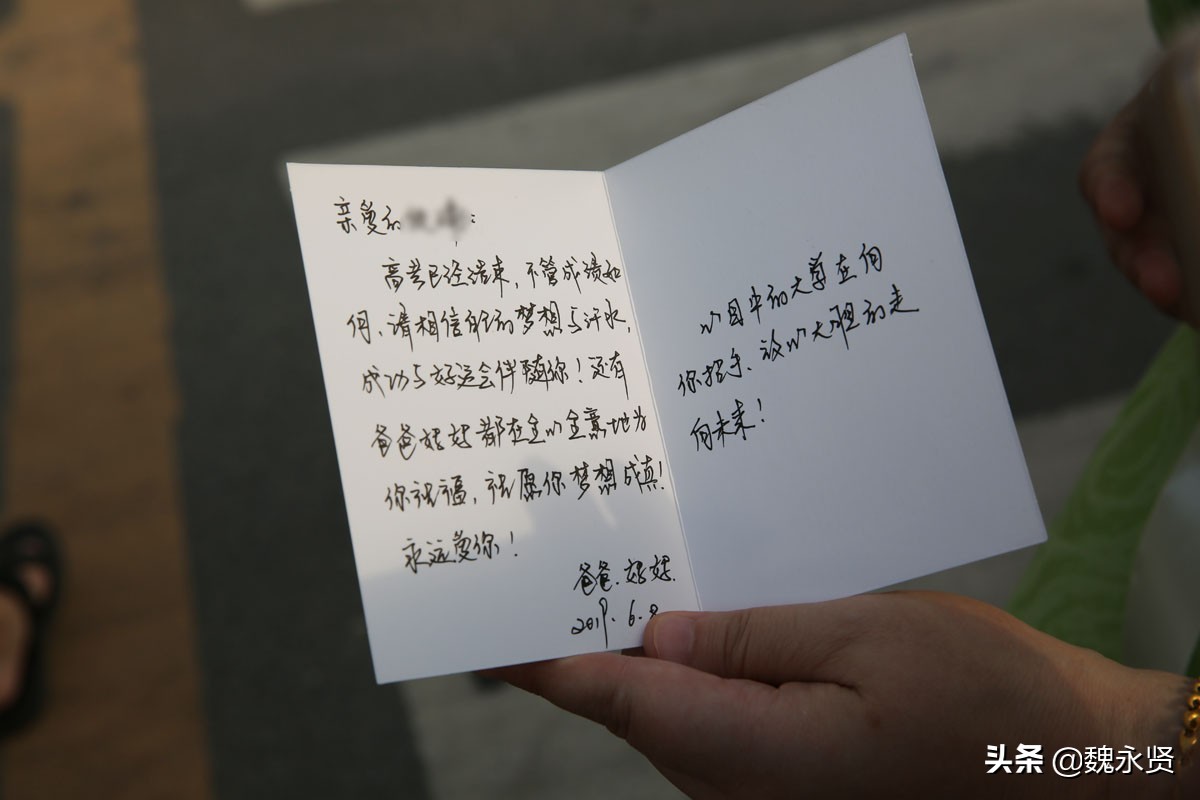 亲爱的
高考已经结束，不管成绩如
何、请相信自己的梦想与汗水，
成功与好运会伴随你！还有
爸爸妈妈都在全心全意地为
你祝福，祝愿你梦想成真！
永远爱你！
爸爸.妈妈.
2019.6.8
心目中的大学在向
你招手、放心大胆的走
向未来！
头条 @魏永贤